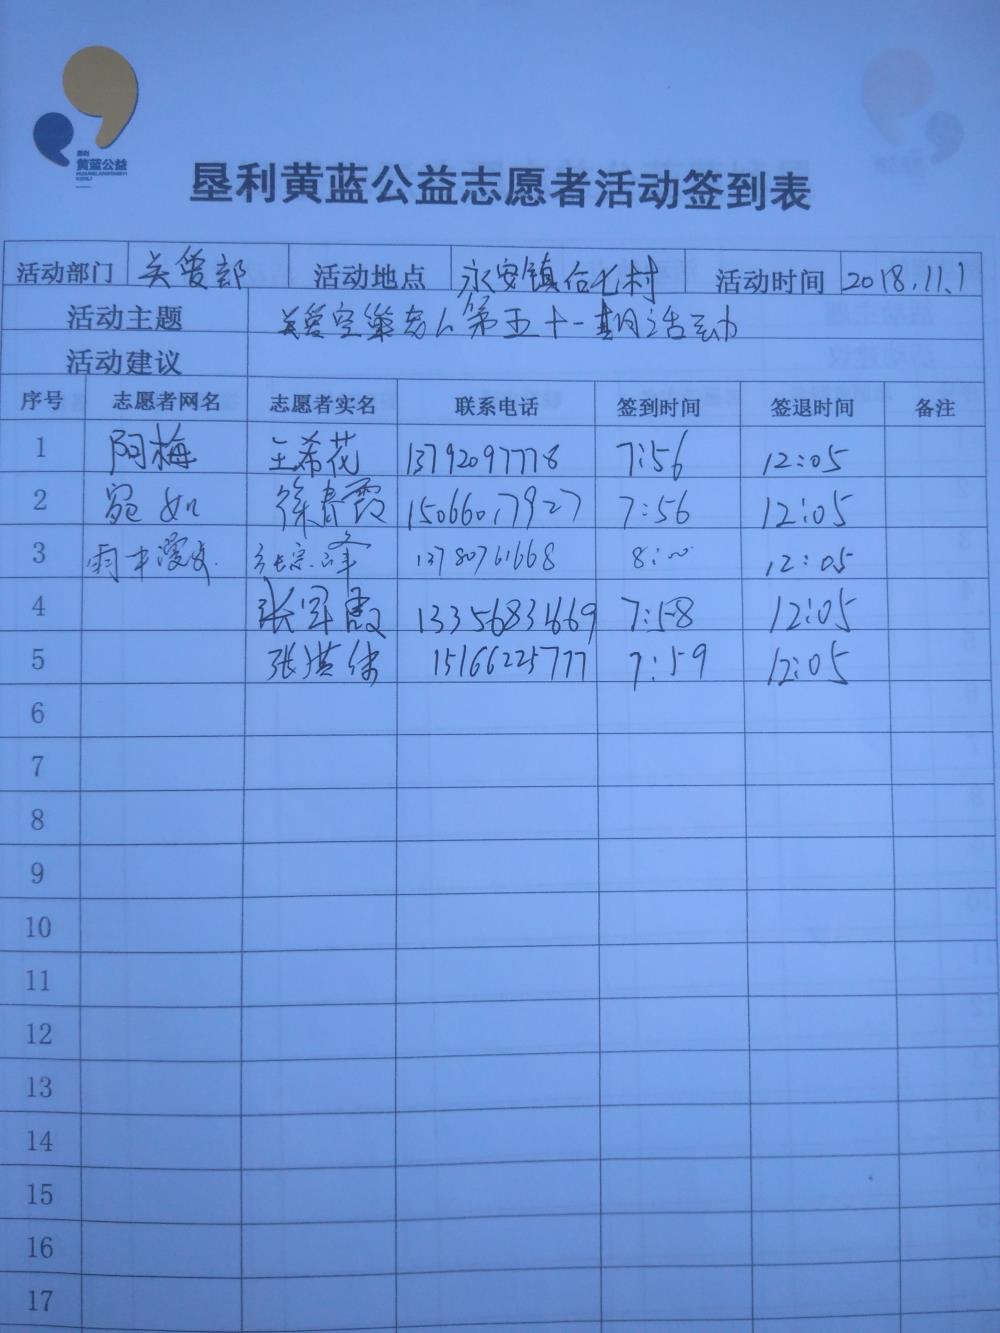 垦利
黄蓝公益
HUANGLANGONGYI
KENLI
垦利黄蓝公益志愿者活动签到表
活动部门 关爱部 活动地点 永安镇 村 活动时间 2018.11.1
活动主题 关爱空巢老人第五十一期活动
活动建议
序号 志愿者网名 志愿者实名 联系电话 签到时间 签退时间 备注
1 阿梅 王希花 13792097778 7:56 12:05
2 宛如 徐春霞 15066017927 7:56 12:05
3 雨中漫步 张宗峰 13780761668 8:00 12:05
4 张军霞 13356831669 7:58 12:05
5 张洪伟 15166225777 7:59 12:05
6
7
8
9
10
11
12
13
14
15
16
17